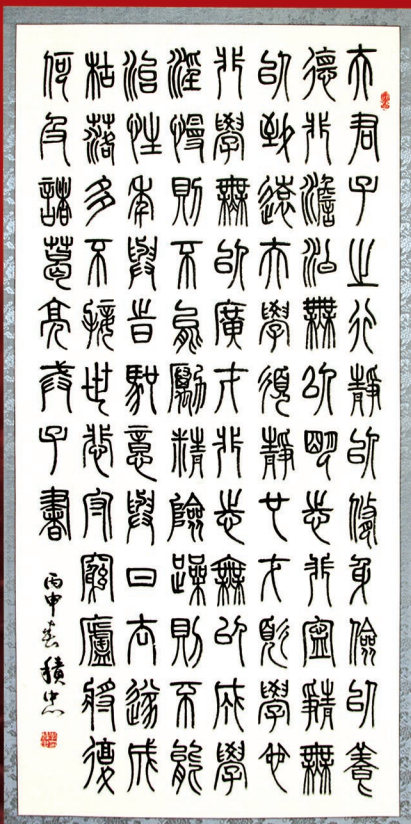 夫君子之行靜以修身儉以養
德非澹泊無以明志非寧靜無
以致遠夫學須靜也才須學也
非學無以廣才非志無以成學
淫慢則不能勵精險躁則不能
治性年與時馳意與日去遂成
枯落多不接世悲守窮廬將復
何及諸葛亮誡子書
丙申春積忠